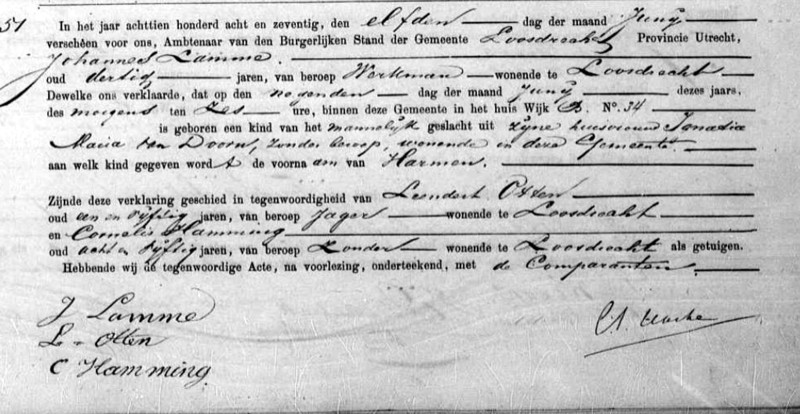 51
In het jaar achttien honderd acht en zeventig, den elfden dag der maand Juny
verschéen voor ons, Ambtenaar van den Burgerlijken Stand der Gemeente Loosdrecht, Provincie Utrecht,
Johannes Lamme
oud dertig jaren, van beroep Werkman wonende te Loosdrecht
Dewelke ons verklaarde, dat op den negenden dag der maand Juny dezes jaars,
des morgens ten zes ure, binnen deze Gemeente in het huis Wijk B. No. 34
is geboren een kind van het mannelijk geslacht uit zijne huisvrouw
Maria van Doorn, zonder beroep, wonende in deze Gemeente.
aan welk kind gegeven wordt de voornaam van Harmen.
Zijnde deze verklaring geschied in tegenwoordigheid van Leendert Otten
oud een en vyftig jaren, van beroep Jager wonende te Loosdrecht
en Cornelis Hamming
oud acht en vyftig jaren, van beroep Zonder wonende te Loosdrecht als getuigen.
Hebbende wij de tegenwoordige Acte, na voorlezing, onderteekend, met de Comparanten.
J Lamme
L. Otten
C Hamming